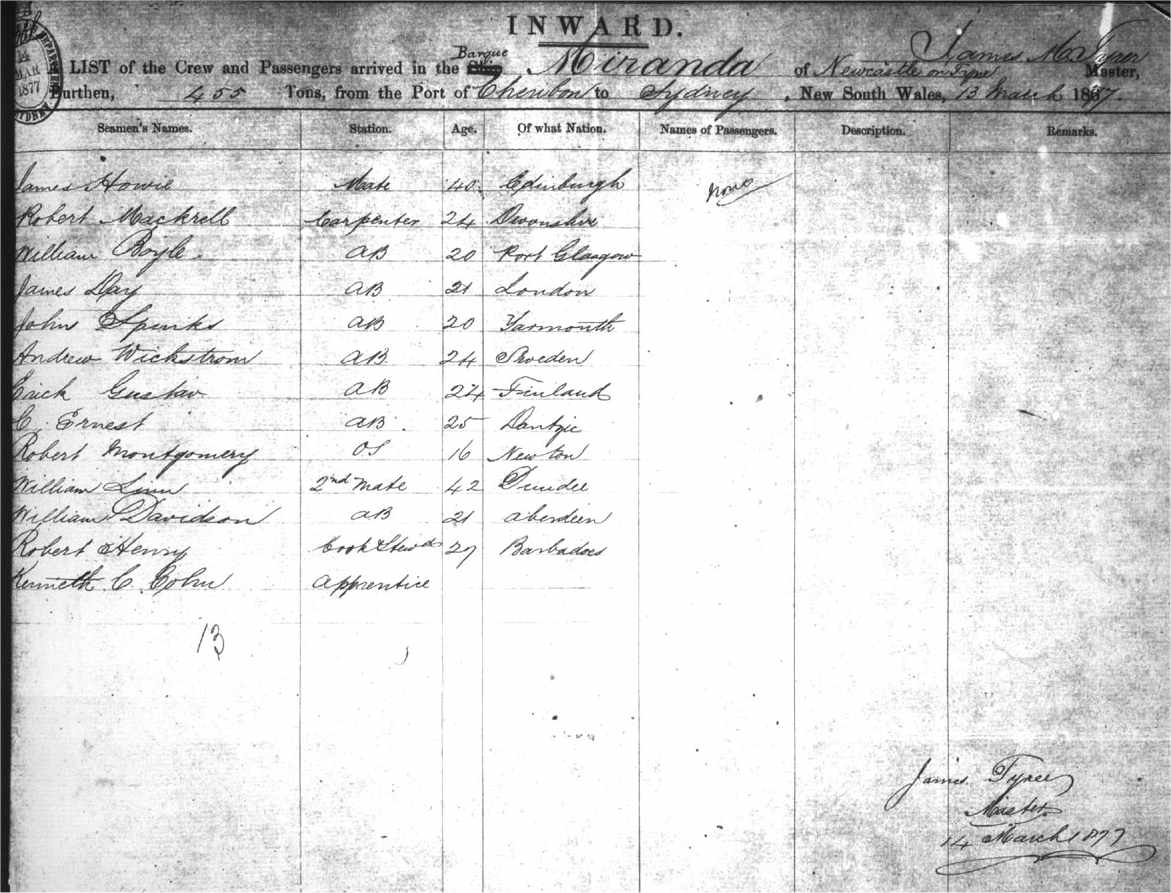 INWARD.
James McTyrer
LIST of the Crew and Passengers arrived in the Ship Barque Miranda of Newcastle on Tyne Master,
Burthen, 455 Tons, from the Port of Cheribon to Sydney, New South Wales, 13 March 1877.
MAR
1877
Seamen's Names. Station. Age. Of what Nation. Names of Passengers. Description. Remarks.
James Howie Mate 40 Edinburgh None
Robert Mackrell Carpenter 24 Devonshire
William Boyle AB 20 Port Glasgow
James Day AB 21 London
John Spinks AB 20 Yarmouth
Andrew Wickstrom AB 24 Sweden
Erick Gustav AB 24 Finland
C. Ernest AB 25 Dantzic
Robert Montgomery OS 16 Newton
William Linn 2nd Mate 42 Dundee
William Davidson AB 21 aberdeen
Robert Henry Cook & Stewd 27 Barbadoes
Kenneth C. Colm Apprentice
13
James Tyrer
Master
14 March 1877